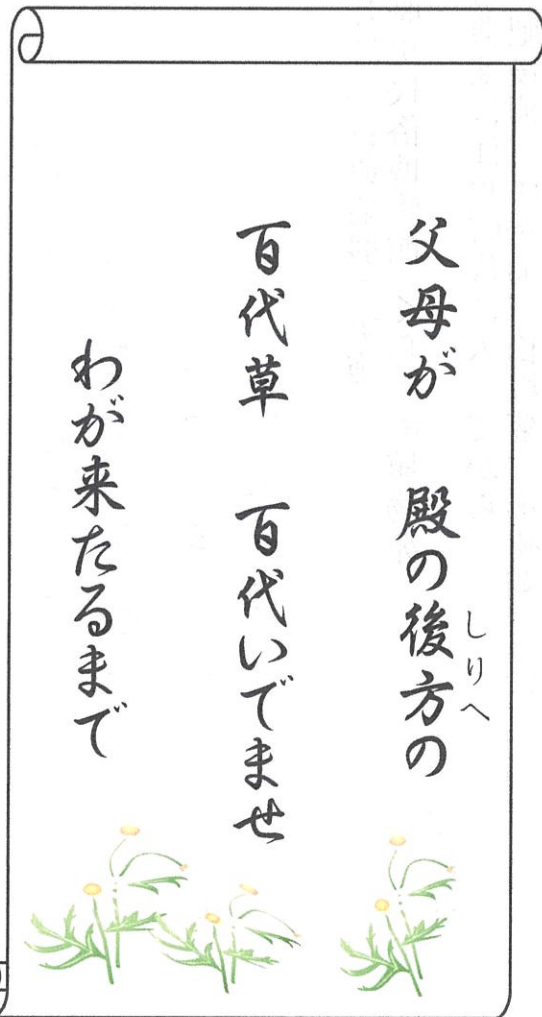 父母が　殿の後方の
しりへ
百代草　百代いでませ
わが来たるまで